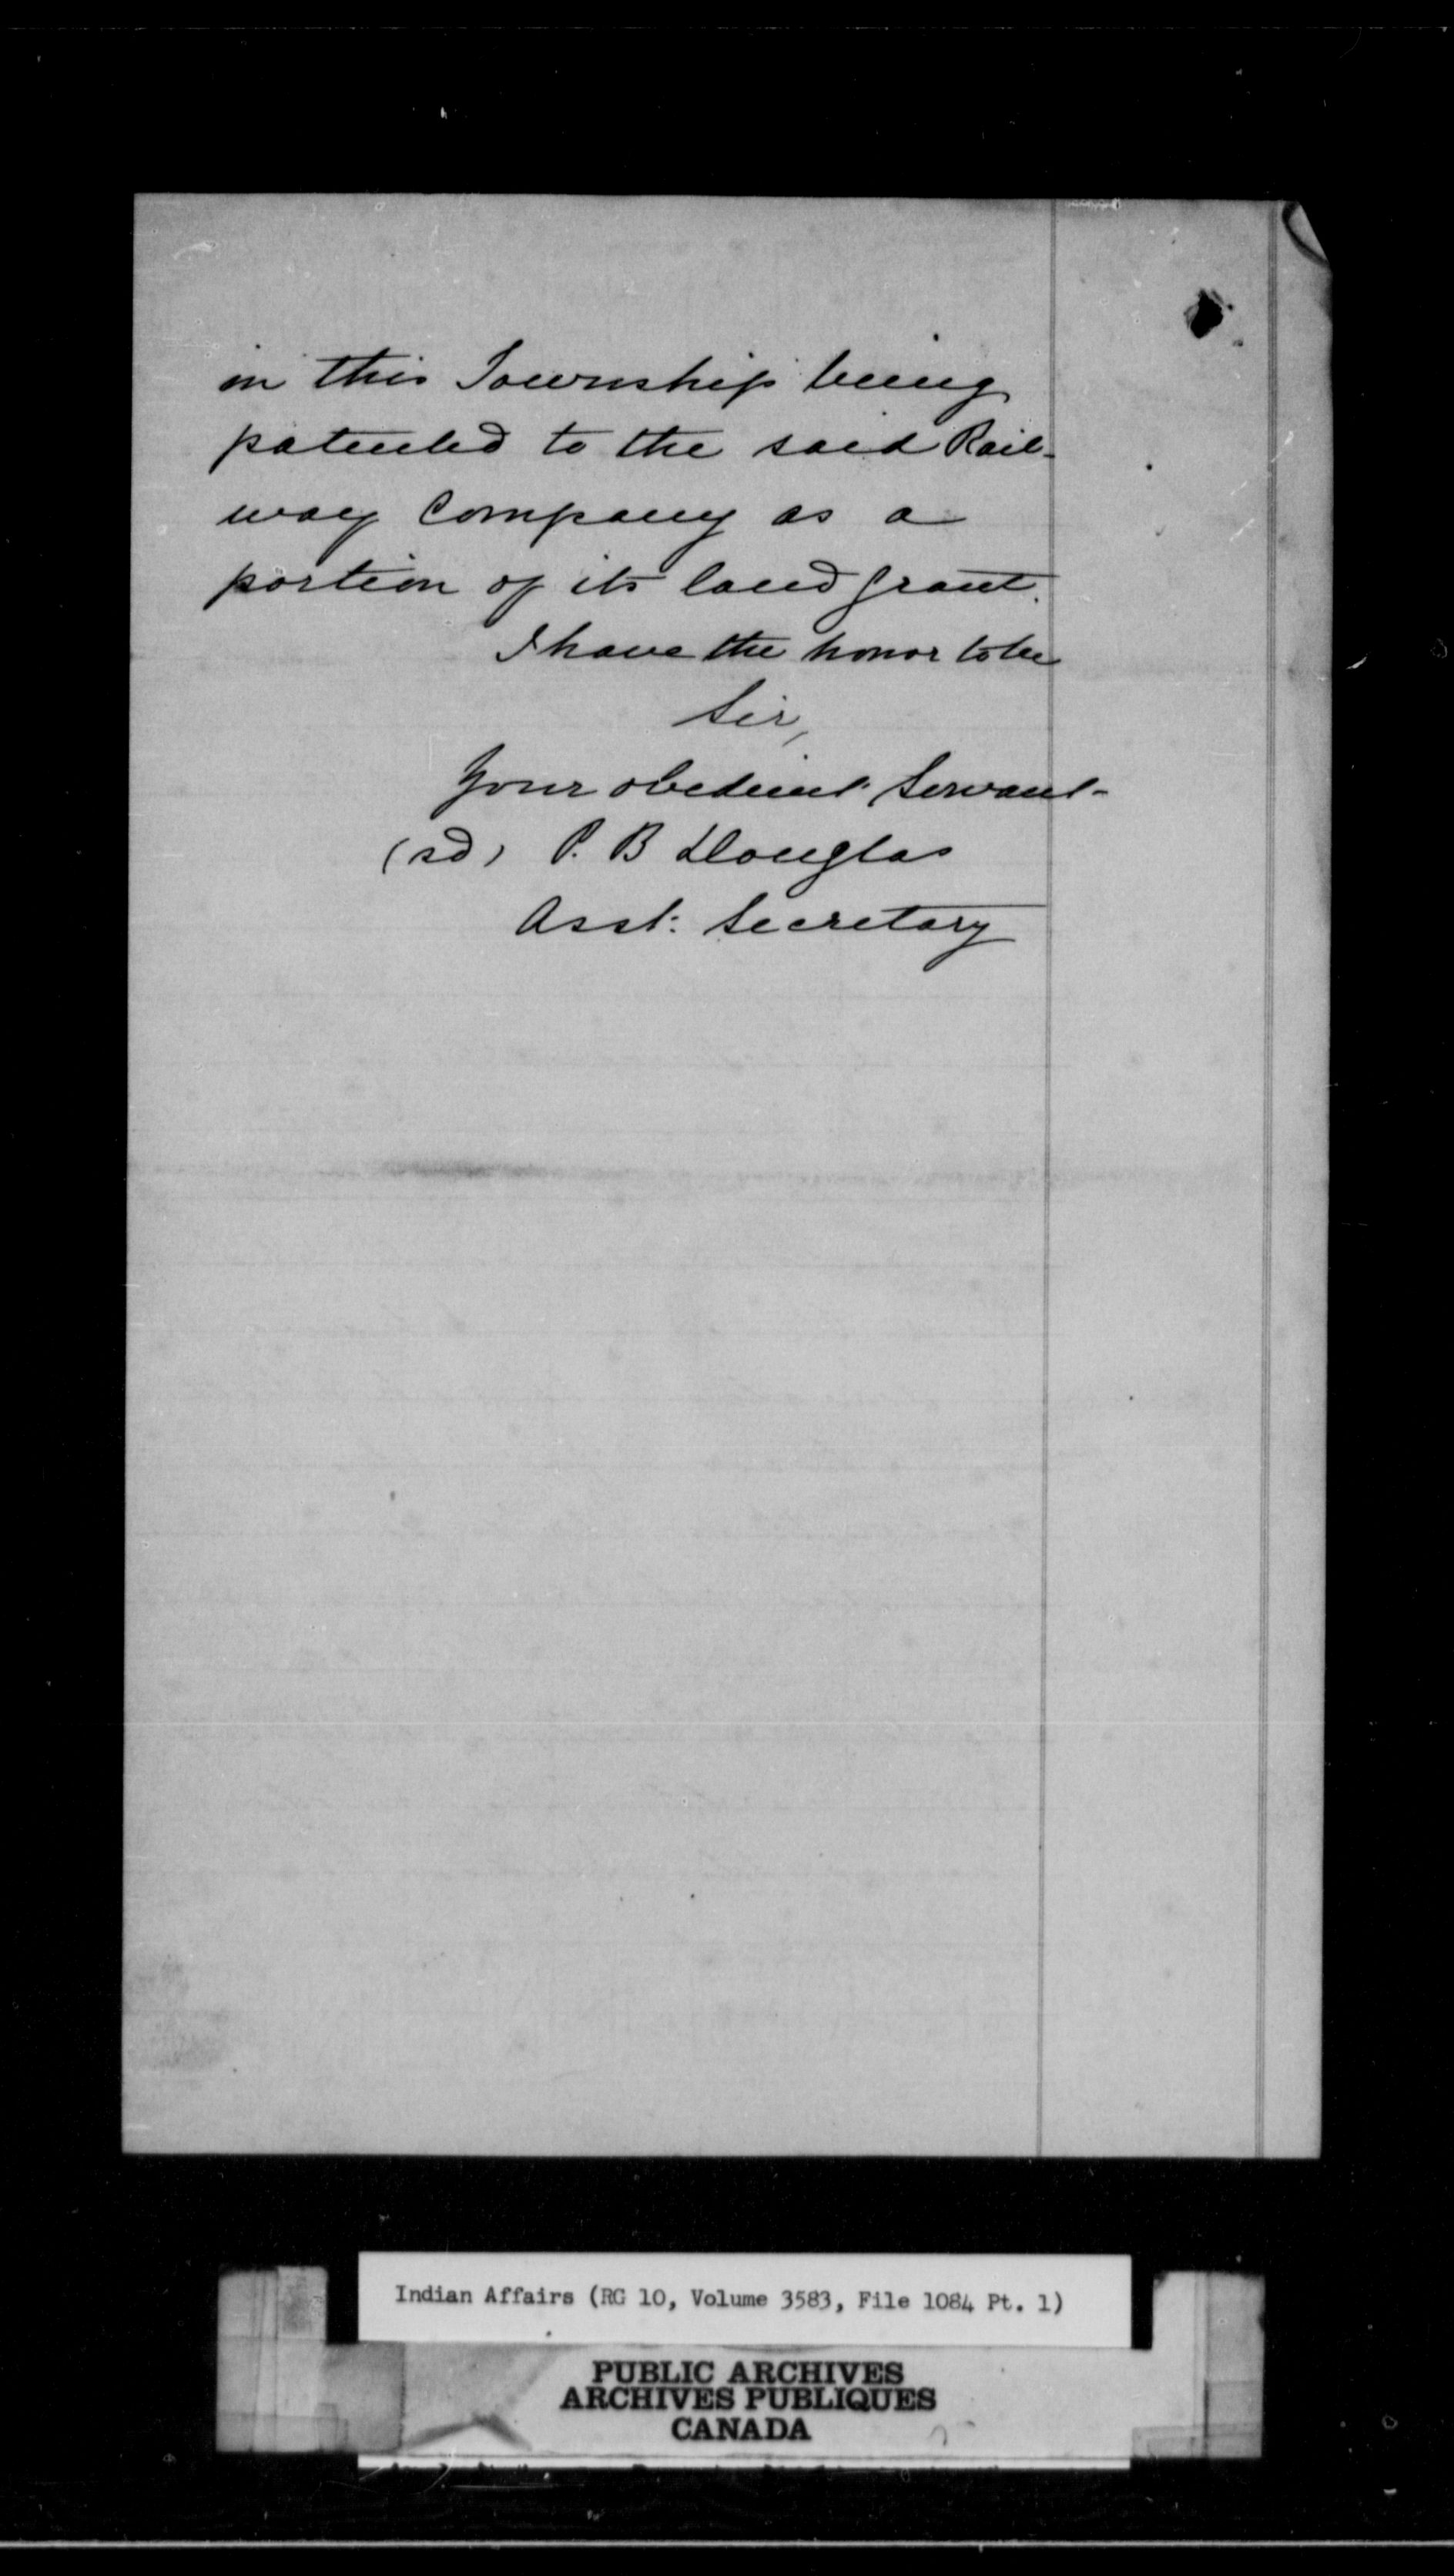 in this Township being
patented to the said Rail-
way Company as a
portion of its land grant.
I have the honor to be
Sir,
Your obedient Servant-
(sd) P. B Douglas
Asst: Secretary
Indian Affairs (RG 10, Volume 3583, File 1084 Pt. 1)
PUBLIC ARCHIVES
ARCHIVES PUBLIQUES
CANADA